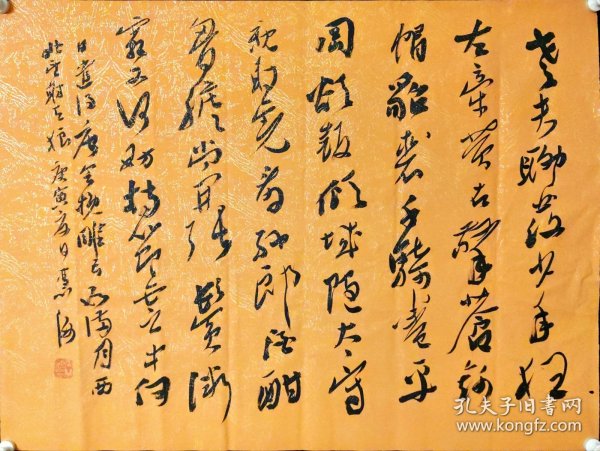 老夫聊发少年狂
左牵黄右擎苍锦
帽貂裘千骑卷平
冈欲报倾城随太守
亲射虎看孙郎酒酣
胸胆尚开张鬓微
霜又何妨持节云中何
日遣冯唐会挽雕弓如满月西
北望射天狼庚寅
孔夫子旧书网
www.kongfz.com